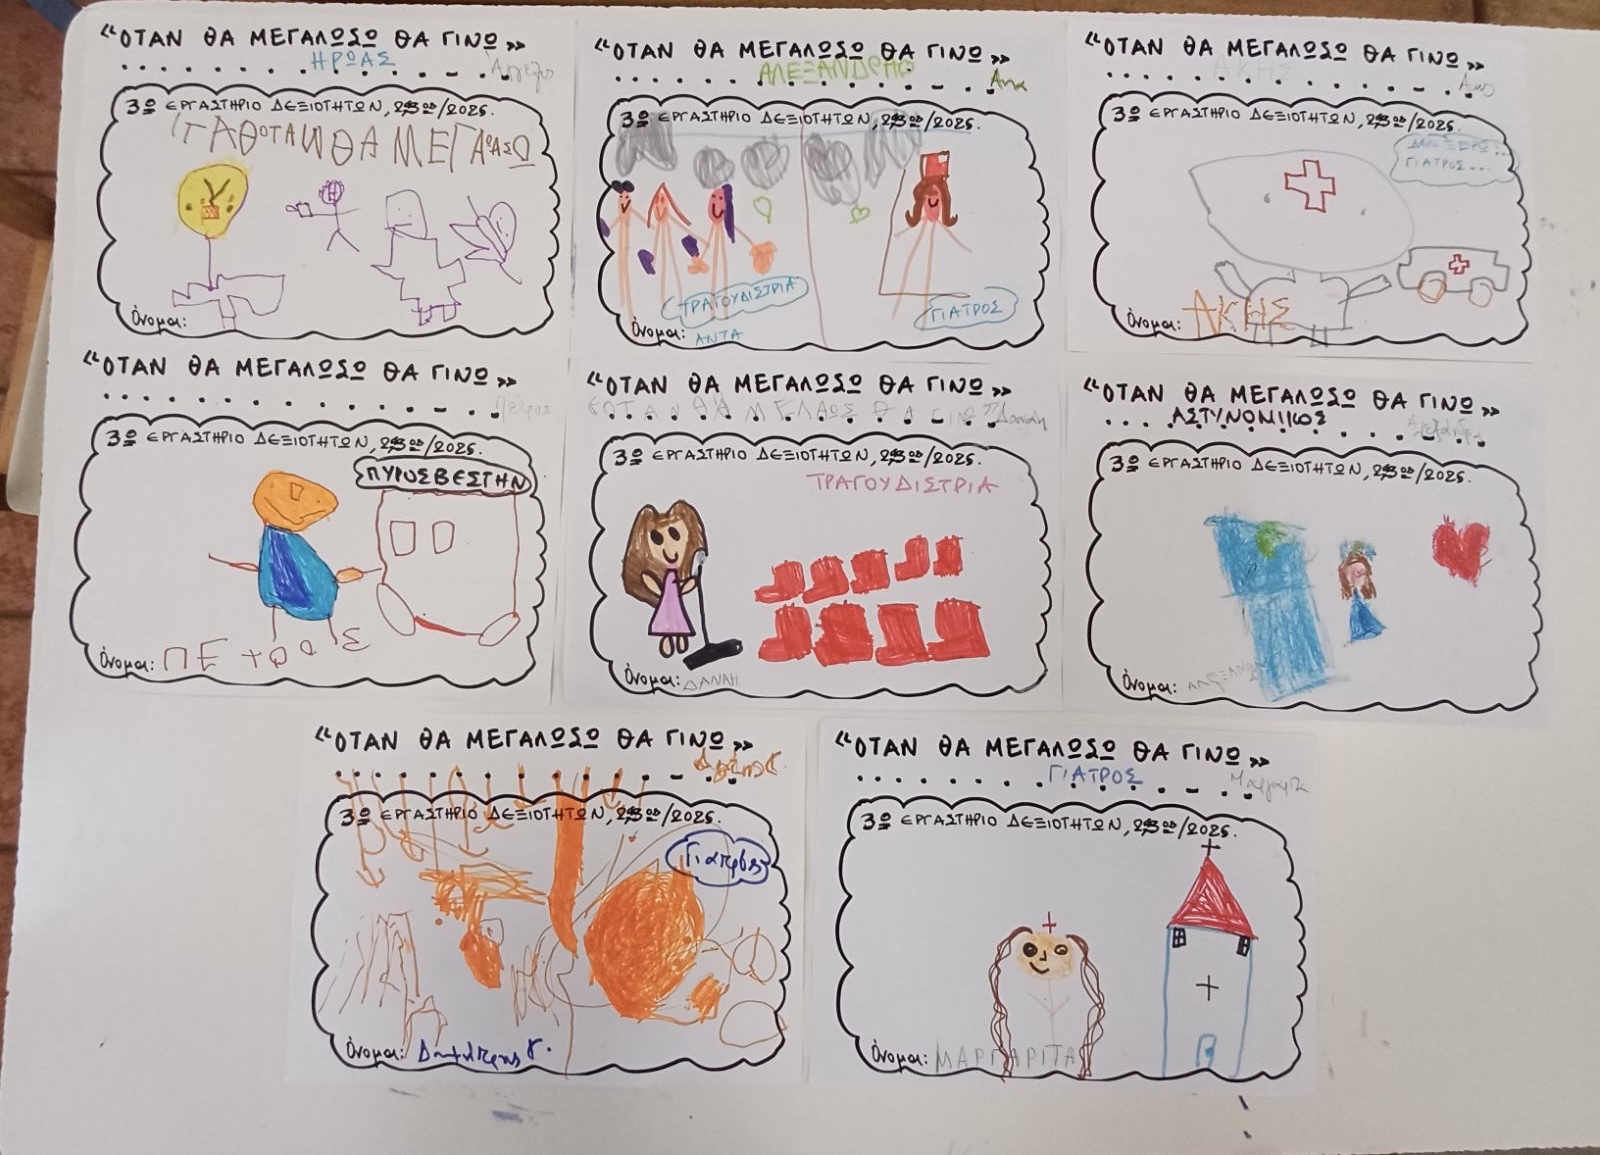 «ΟΤΑΝ ΘΑ ΜΕΓΑΛΩΣΩ ΘΑ ΓΙΝΩ»
ΗΡΩΑΣ
3ο ΕΡΓΑΣΤΗΡΙΟ ΔΕΞΙΟΤΗΤΩΝ, /2025.
Όνομα:
«ΟΤΑΝ ΘΑ ΜΕΓΑΛΩΣΩ ΘΑ ΓΙΝΩ»
3ο ΕΡΓΑΣΤΗΡΙΟ ΔΕΞΙΟΤΗΤΩΝ, /2025.
ΤΡΑΓΟΥΔΙΣΤΡΙΑ
ΓΙΑΤΡΟΣ
Όνομα: ΑΝΤΑ
«ΟΤΑΝ ΘΑ ΜΕΓΑΛΩΣΩ ΘΑ ΓΙΝΩ»
ΑΚΗΣ
3ο ΕΡΓΑΣΤΗΡΙΟ ΔΕΞΙΟΤΗΤΩΝ, /2025.
ΔΑΝ ΞΕΡΩ...
ΓΙΑΤΡΟΣ...
Όνομα: ΑΚΗΣ
«ΟΤΑΝ ΘΑ ΜΕΓΑΛΩΣΩ ΘΑ ΓΙΝΩ»
Πέτρος
3ο ΕΡΓΑΣΤΗΡΙΟ ΔΕΞΙΟΤΗΤΩΝ, /2025.
ΠΥΡΟΣΒΕΣΤΗΝ
Όνομα: ΠΕΤΡΟΣ
«ΟΤΑΝ ΘΑ ΜΕΓΑΛΩΣΩ ΘΑ ΓΙΝΩ»
Δανάη
3ο ΕΡΓΑΣΤΗΡΙΟ ΔΕΞΙΟΤΗΤΩΝ, /2025.
ΤΡΑΓΟΥΔΙΣΤΡΙΑ
Όνομα: ΔΑΝΑΗ
«ΟΤΑΝ ΘΑ ΜΕΓΑΛΩΣΩ ΘΑ ΓΙΝΩ»
ΑΣΤΥΝΟΜΙΚΟΣ
3ο ΕΡΓΑΣΤΗΡΙΟ ΔΕΞΙΟΤΗΤΩΝ, /2025.
Όνομα:
«ΟΤΑΝ ΘΑ ΜΕΓΑΛΩΣΩ ΘΑ ΓΙΝΩ»
3ο ΕΡΓΑΣΤΗΡΙΟ ΔΕΞΙΟΤΗΤΩΝ, /2025.
Γιατρός
Όνομα: Δημήτρης Γ.
«ΟΤΑΝ ΘΑ ΜΕΓΑΛΩΣΩ ΘΑ ΓΙΝΩ»
ΓΙΑΤΡΟΣ
3ο ΕΡΓΑΣΤΗΡΙΟ ΔΕΞΙΟΤΗΤΩΝ, /2025.
Όνομα: ΜΑΡΓΑΡΙΤΑ